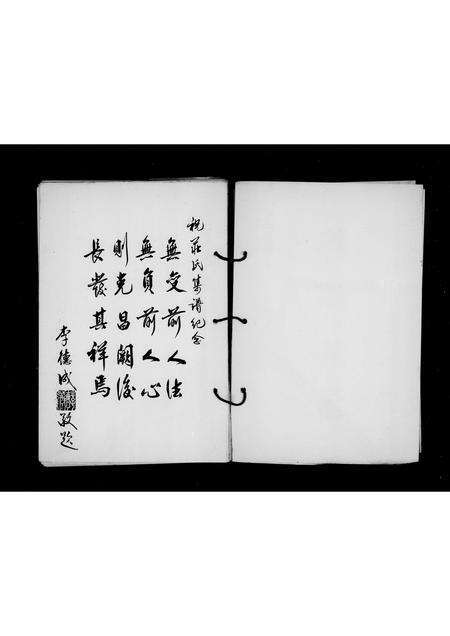 祝莊氏集譜紀念
無文前人法
無負前人心
則克昌闕後
長發其祥焉
李德成敬題